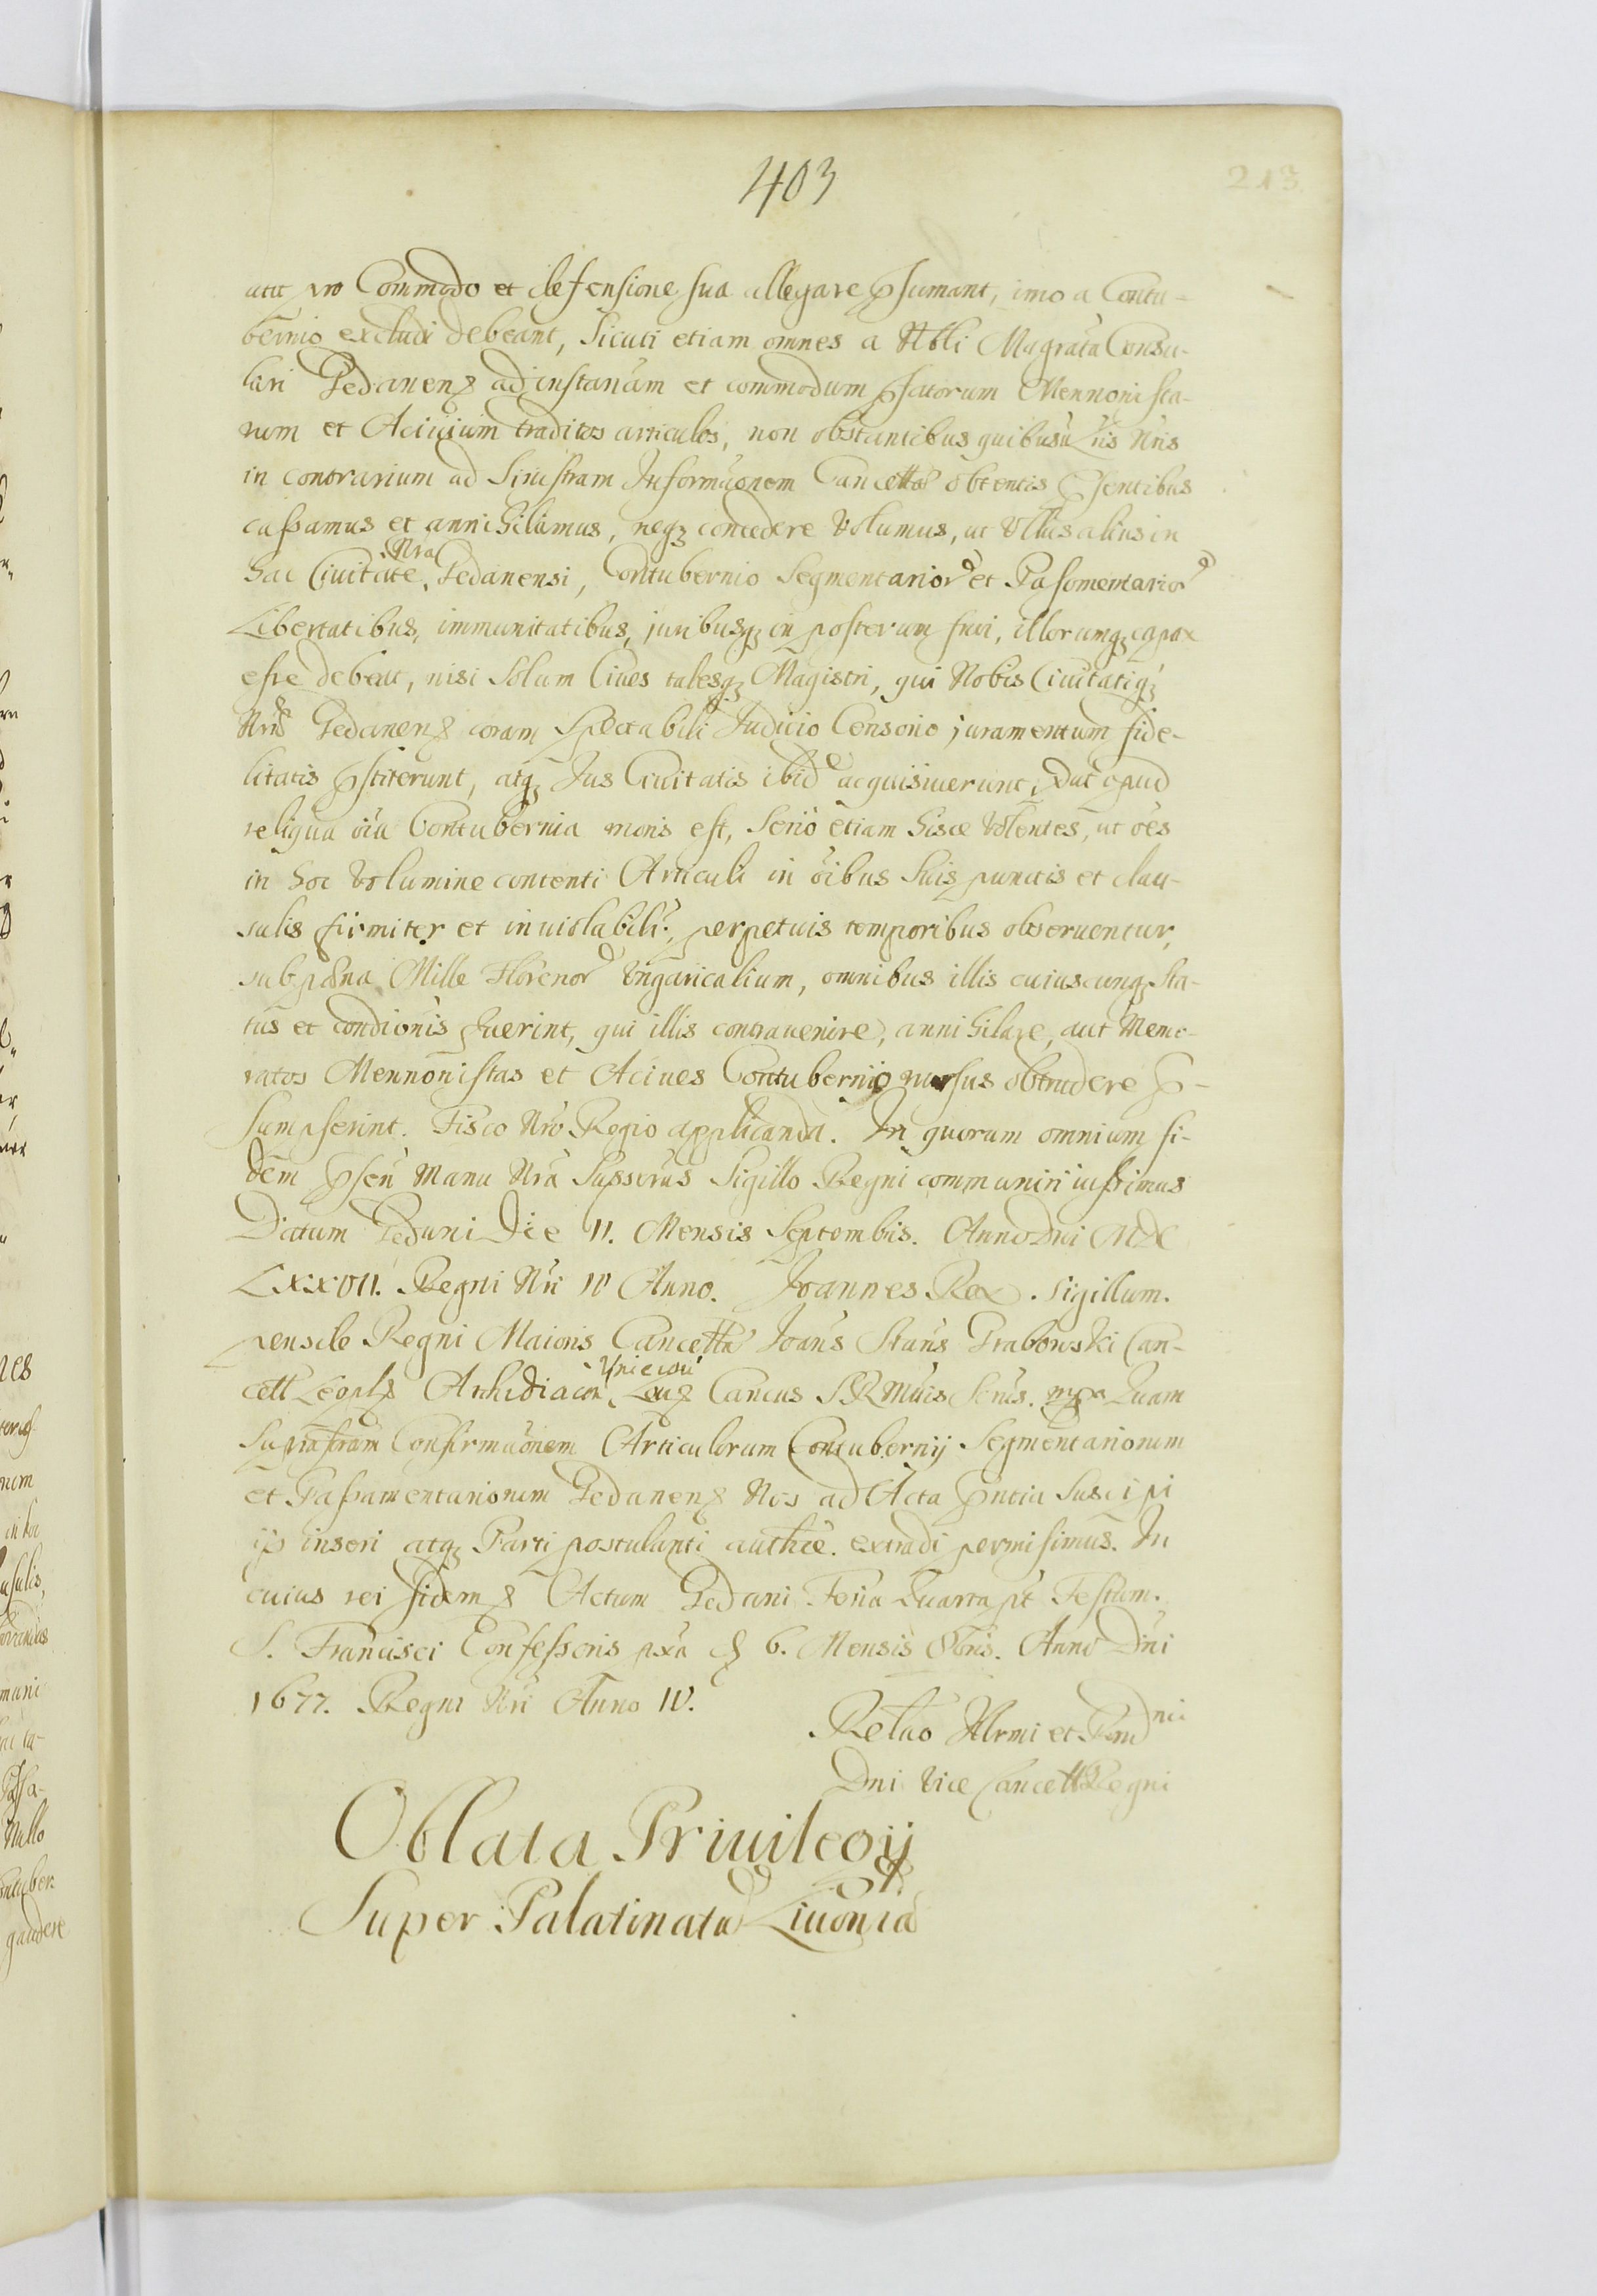 403
213
aut pro Commodo et defensione sua allegare p̄sumant, imo a Contu-
bernio excludi debeant, Sicuti etiam omnes a Nbli Magratu Consu-
lari Gedanen̄ ad instantiam et commodum p̄fatorum Mennonista-
rum et Aciuium traditos articulos, non obstantibus quibusuis Lris Nris
in contrarium ad Sinistram Informaōnem Cancellae obtentis p̄sentibus
cassamus et annihilamus, neq; concedere Volumus, ut Ullus alius in
hac Ciuitate Nra Gedanensi, Contubernio Segmentarior et Pasomentarior
Libertatibus, immunitatibus, juribusq; in posterum frui, illorumq; capax
esse debeat, nisi Solum Ciues talesq; Magistri, qui Nobis Ciuitatiq;
Nrae Gedanen̄ coram Spectabili Judicio Censorio juramentum fide-
litatis p̄stiterunt, atq; Jus Ciuitatis ibid acquisiuerunt, put apud
reliqua oīa Contubernia moris est, Serio etiam hisce Volentes, ut oēs
in hoc Volumine contenti Articuli in oībus Suis punctis et clau-
sulis firmiter et inuiolabilr, perpetuis temporibus obseruentur,
sub paena Mille Florenor Ungaricalium, omnibus illis cuiuscunq; Sta-
tus et condionis fuerint, qui illis contrauenire, annihilare, aut Memo-
ratos Mennonistas et Aciues Contubernio rursus obtrudere p̄-
sumpserint. Fisco Nro Regio applicanda. In quorum omnium fi-
dem p̄sen Manu Nra Subscrus Sigillo Regni communiri iussimus
Datum Gedani Die 11. Mensis Septembis. Anno Dni MDC
LXXVII. Regni Nri IV Anno. Joannes Rex. Sigillum.
pensile Regni Maioris Cancellae Joans Stans Grabowski Can-
cell Archidiacon Unieiou Cancus SRMtis Srius. mpa Quam
Suprascram Confirmaōnem Articulorum Contubernij Segmentariorum
et Passamentariorum Gedanen̄ Nos ad Acta p̄ntia Suscipi
ijs inseri atq; Parti postulanti authce. extradi permisimus. In
cuius rei fidem Actum Gedani Feria Quarta pt Festum.
S. Francisci Confessoris pxa 6. Mensis 8bris. Anno Dni
1677. Regni Nri Anno IV.
Relao Illrmi et Rmd
Dni Vice Cancell Regni
Oblata Priuilegij
Super Palatinatu Liuonia